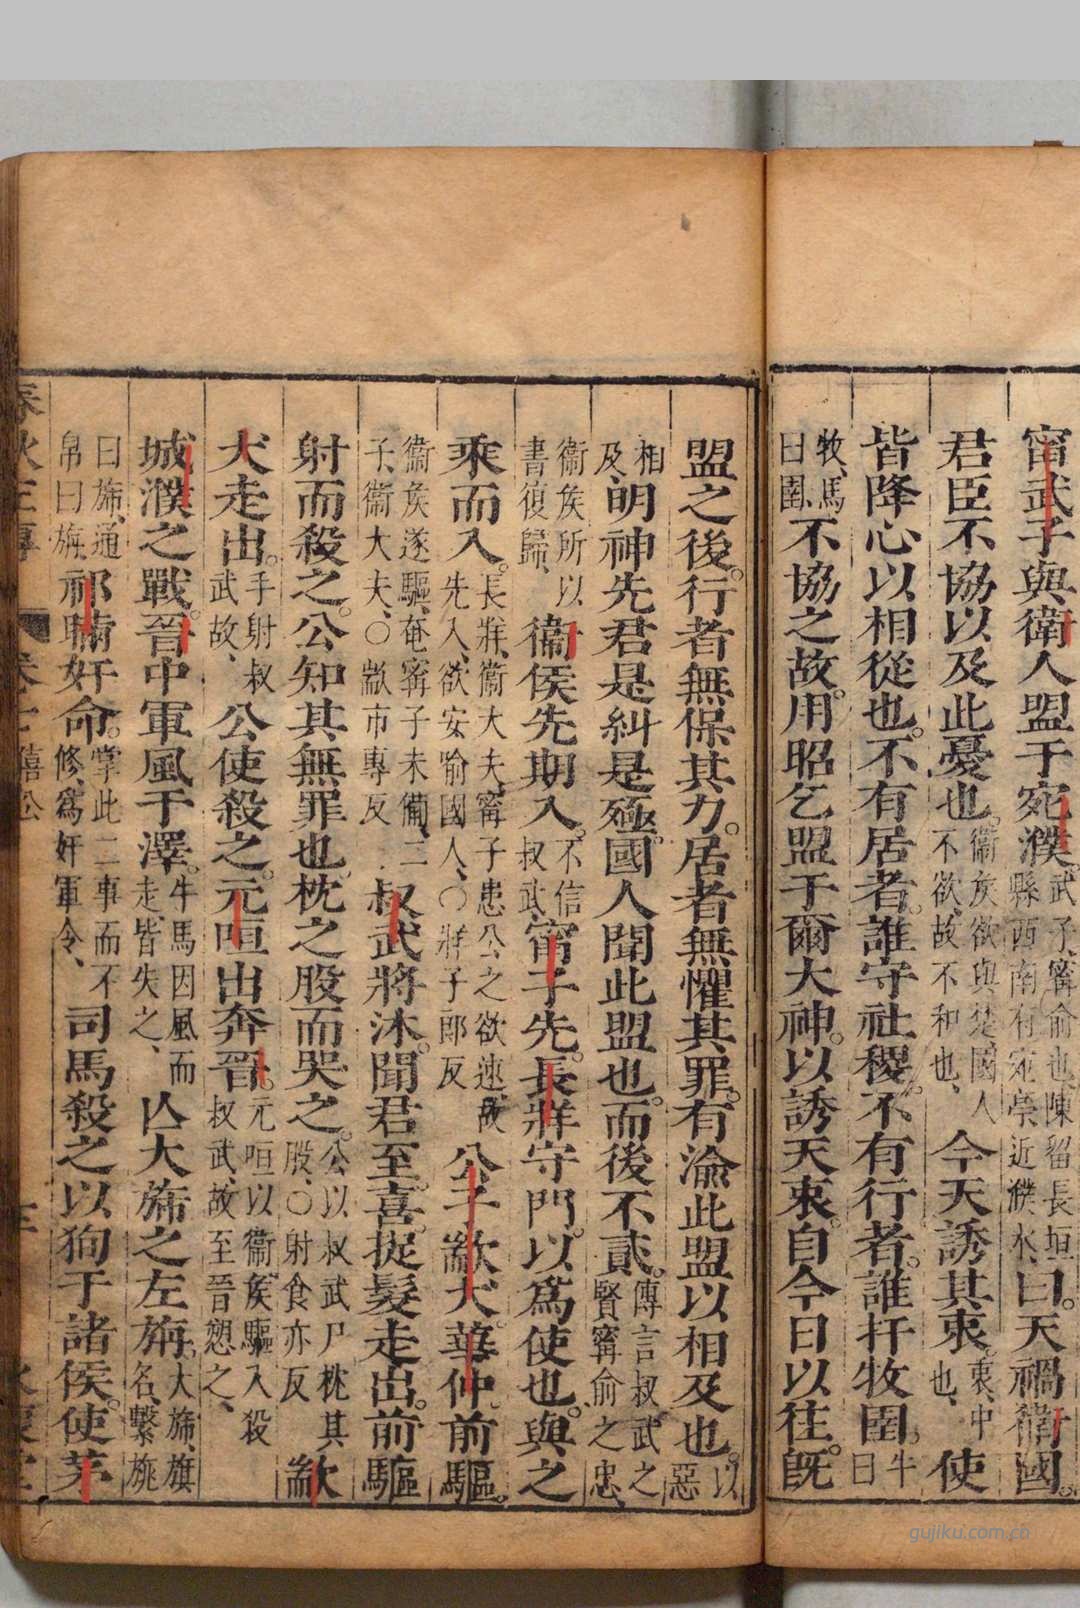 甯武子與衛人盟于宛濮。武子甯俞也陳留長垣縣西南有宛亭近濮水、曰。天禍衛國。
君臣不協以及此憂也。衛侯欲與楚國人不欲、故不和也、今天誘其衷。衷、中也、使
皆降心以相從也。不有居者。誰守社稷。不有行者。誰扞牧圉。牛曰
牧、馬曰圉、不協之故。用昭乞盟于爾大神。以誘天衷。自今日以往。既
盟之後。行者無保其力。居者無懼其罪。有渝此盟以相及也。以惡
相及、明神先君是糾是殛。國人聞此盟也。而後不貳。傳言叔武之賢甯俞之忠、
衛侯所以書復歸、衛侯先期入。不信叔武、甯子先。長牂守門。以爲使也。與之
乘而入。長牂、衛大夫、甯子患公之欲速、故先入、欲安喻國人、〇牂子郎反公子歂犬。華仲前驅。
衛侯遂驅、奄甯子未備、二子、衛大夫、〇歂市專反叔武將沐。聞君至。喜。捉髮走出。前驅
射而殺之。公知其無罪也。枕之股而哭之。公以叔武尸枕其股、〇射食亦反歂
犬走出。手射叔武故、公使殺之。元咺出奔晉。元咺以衛侯驅入殺叔武、故至晉愬之、
城濮之戰。晉中軍風于澤。牛馬因風而走、皆失之、亾大旆之左旃。大旆、旗名、繫旐
曰旆、通帛曰旃、祁瞞奸命。掌此二事而不修、爲奸軍令、司馬殺之以狥于諸侯。使茅
gujiku.com.cn